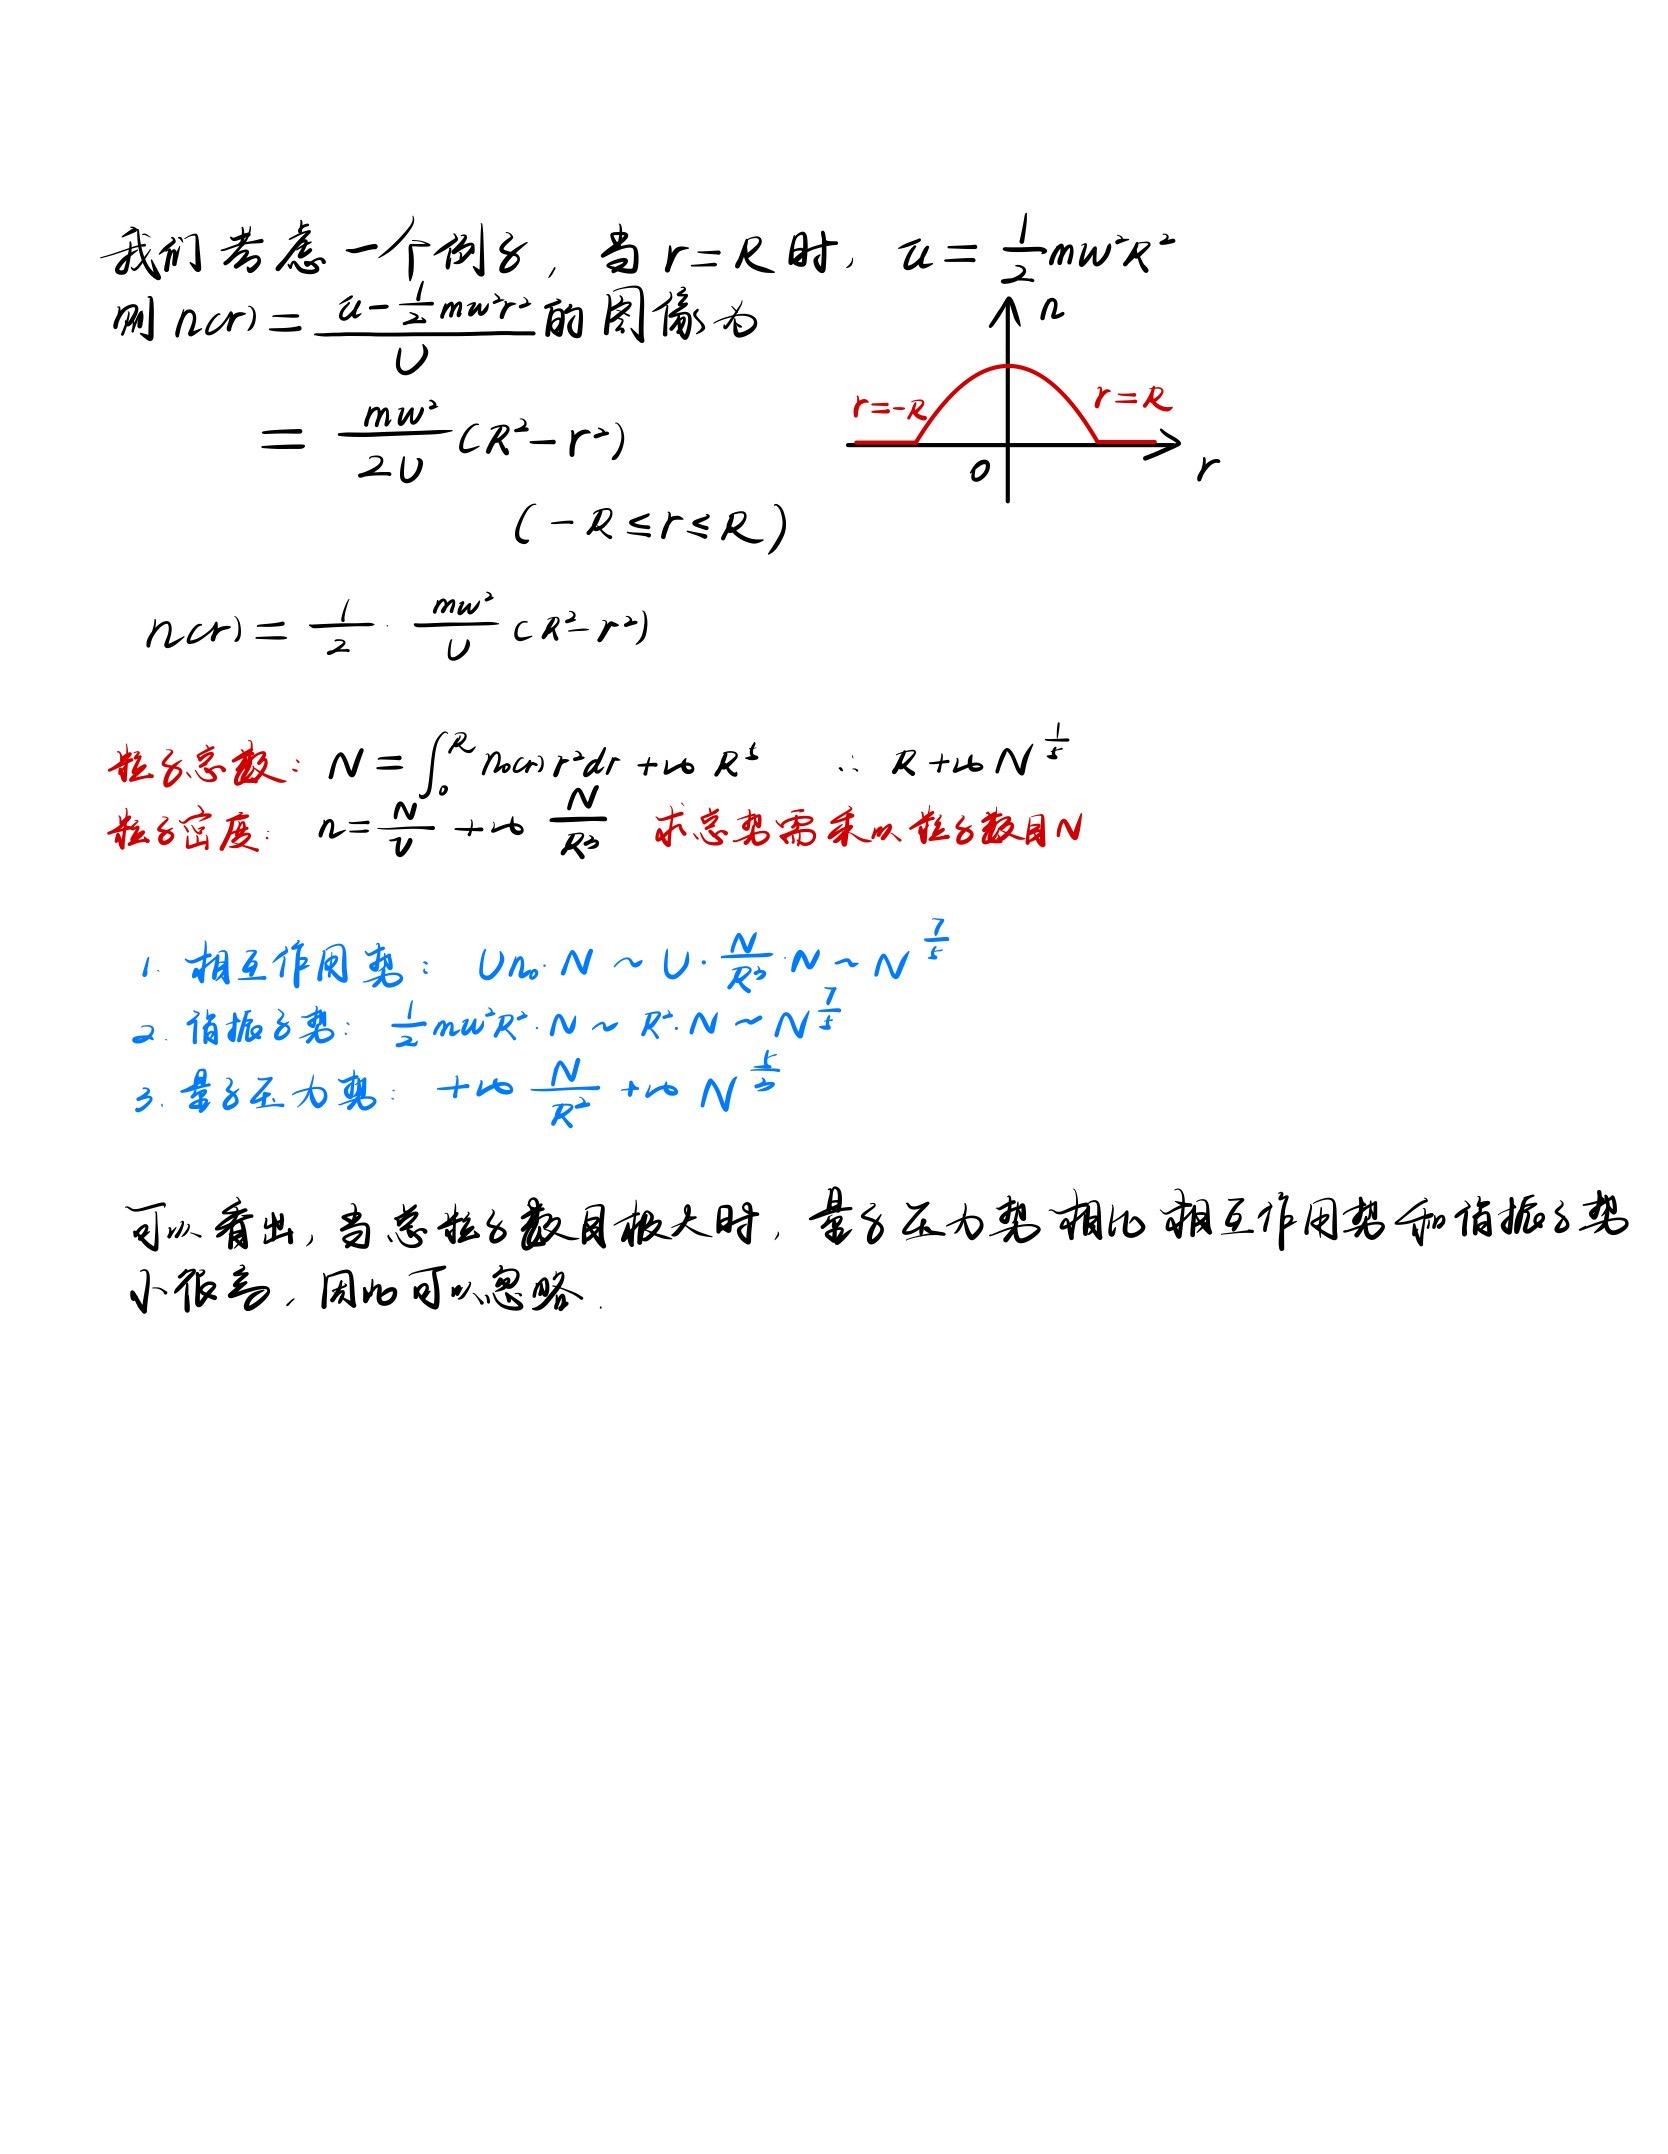 我们考虑一个例子, 当 r = R 时, u = 1/2 mw²R²
则 n(r) = (u - 1/2 mw²r²)/U 的图像为
n
r=-R
r=R
0
r
= mw²/2U (R² - r²)
(-R ≤ r ≤ R)
n(r) = 1/2 · mw²/U (R² - r²)
粒子总数: N = ∫₀ᴿ n₀(r) r²dr ∝ R⁵ ∴ R ∝ N^(1/5)
粒子密度: n = N/V ∝ N/R³ 求总势需乘以粒子数目N
1. 相互作用势: Un₀·N ~ U·N/R³·N ~ N^(7/5)
2. 谐振子势: 1/2 mw²R²·N ~ R²·N ~ N^(7/5)
3. 量子压力势: ∝ N/R² ∝ N^(5/3)
可以看出, 当总粒子数目极大时, 量子压力势相比相互作用势和谐振子势
小很多, 因此可以忽略.